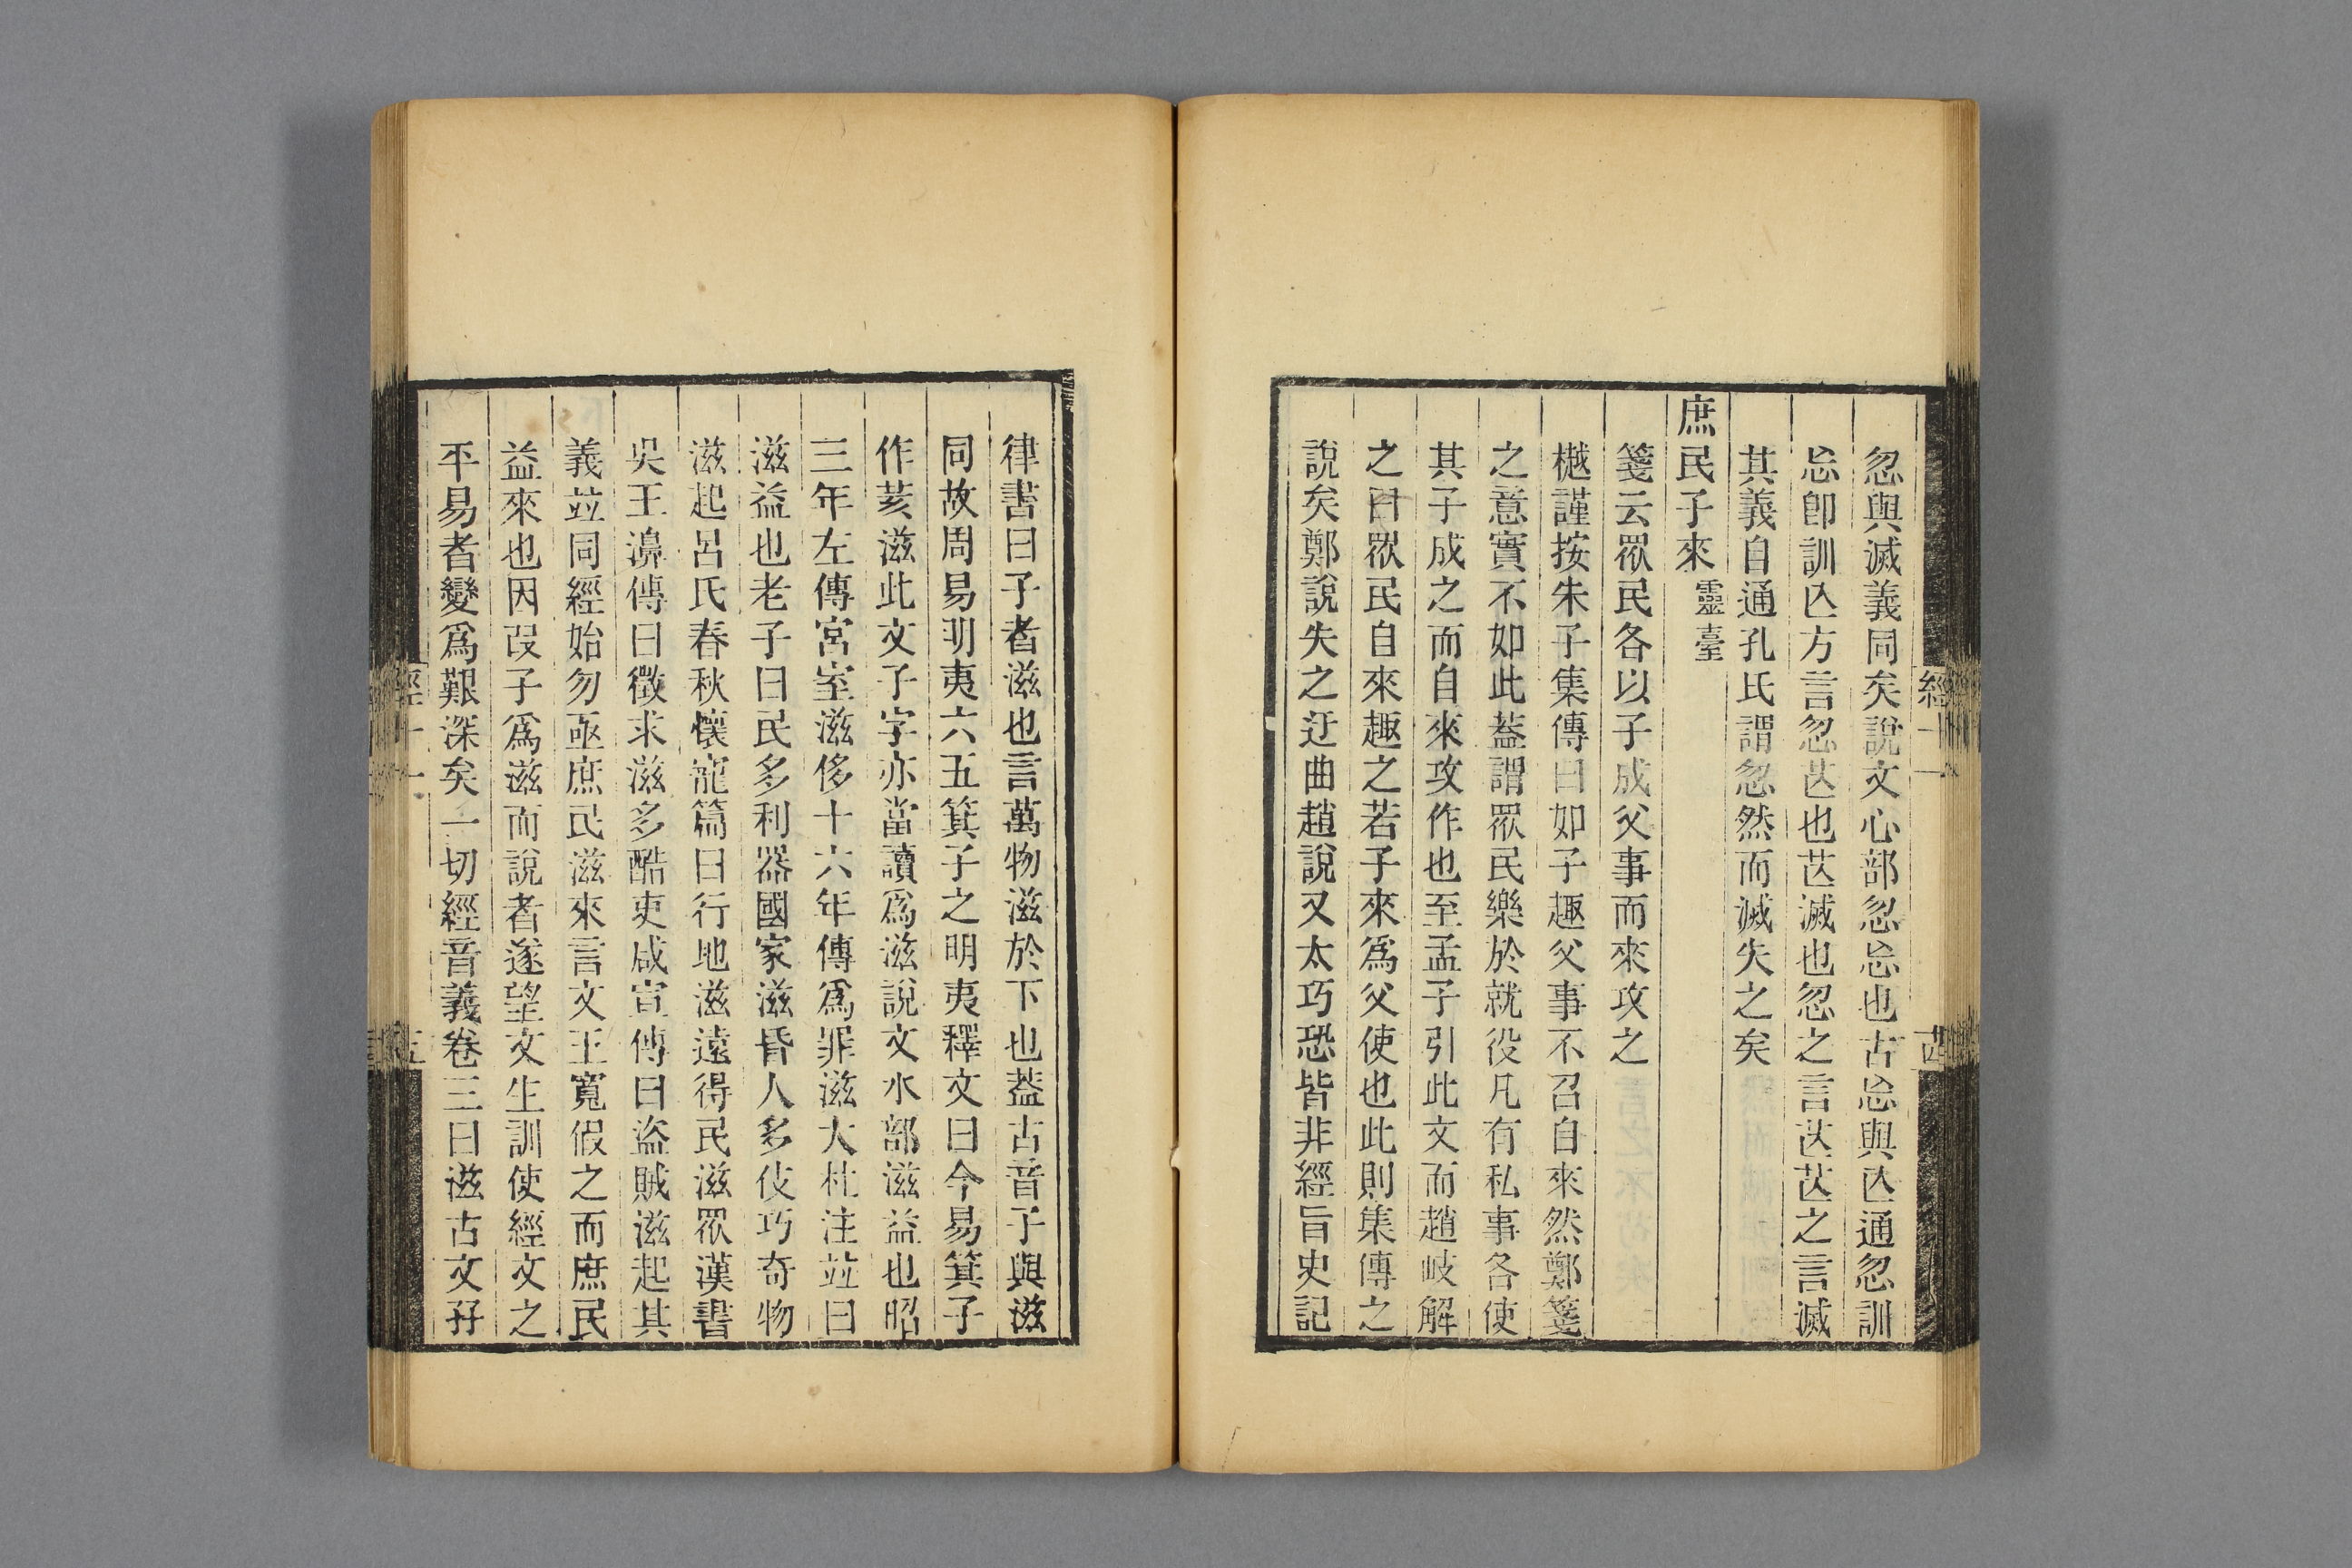 忽與滅義同矣說文心部忽忘也古忘與亾通忽訓
忘卽訓亾方言忽芒也芒滅也忽之言芒芒之言滅
其義自通孔氏謂忽然而滅失之矣
庶民子來靈臺
箋云眾民各以子成父事而來攻之
樾謹按朱子集傳曰如子趣父事不召自來然鄭箋
之意實不如此蓋謂眾民樂於就役凡有私事各使
其子成之而自來攻作也至孟子引此文而趙岐解
之曰眾民自來趣之若子來爲父使也此則集傳之
說矣鄭說失之迂曲趙說又太巧恐皆非經旨史記
律書曰子者滋也言萬物滋於下也蓋古音子與滋
同故周易明夷六五箕子之明夷釋文曰今易箕子
作荄滋此文子字亦當讀爲滋說文水部滋益也昭
三年左傳宮室滋侈十六年傳爲罪滋大杜注竝曰
滋益也老子曰民多利器國家滋昬人多伎巧奇物
滋起呂氏春秋懷寵篇曰行地滋遠得民滋眾漢書
吳王濞傳曰徵求滋多酷吏咸宣傳曰盜賊滋起其
義竝同經始勿亟庶民滋來言文王寬假之而庶民
益來也因叚子爲滋而說者遂望文生訓使經文之
平易者變爲艱深矣一切經音義卷三曰滋古文孖
經十一